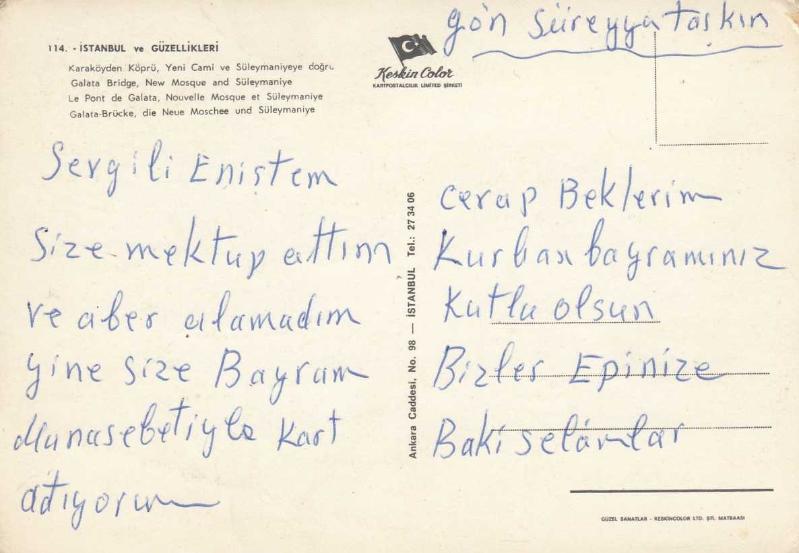 114. - İSTANBUL ve GÜZELLİKLERİ
Karaköyden Köprü, Yeni Cami ve Süleymaniyeye doğru
Galata Bridge, New Mosque and Süleymaniye
Le Pont de Galata, Nouvelle Mosque et Süleymaniye
Galata-Brücke, die Neue Moschee und Süleymaniye
Keskin Color
KARTPOSTALCILIK LİMİTED ŞİRKETİ
gön Süreyya taşkın
Sevgili Eniştem
Size mektup attım
ve aber alamadım
yine size Bayram
Munasebetiyle kart
atıyorum
Ankara Caddesi, No. 98 — İSTANBUL Tel.: 27 34 06
cevap Beklerim
Kurban bayramınız
Kutlu olsun
Bizler Epinize
Baki selâmlar
GÜZEL SANATLAR - KESKİNCOLOR LTD. ŞTİ. MATBAASI